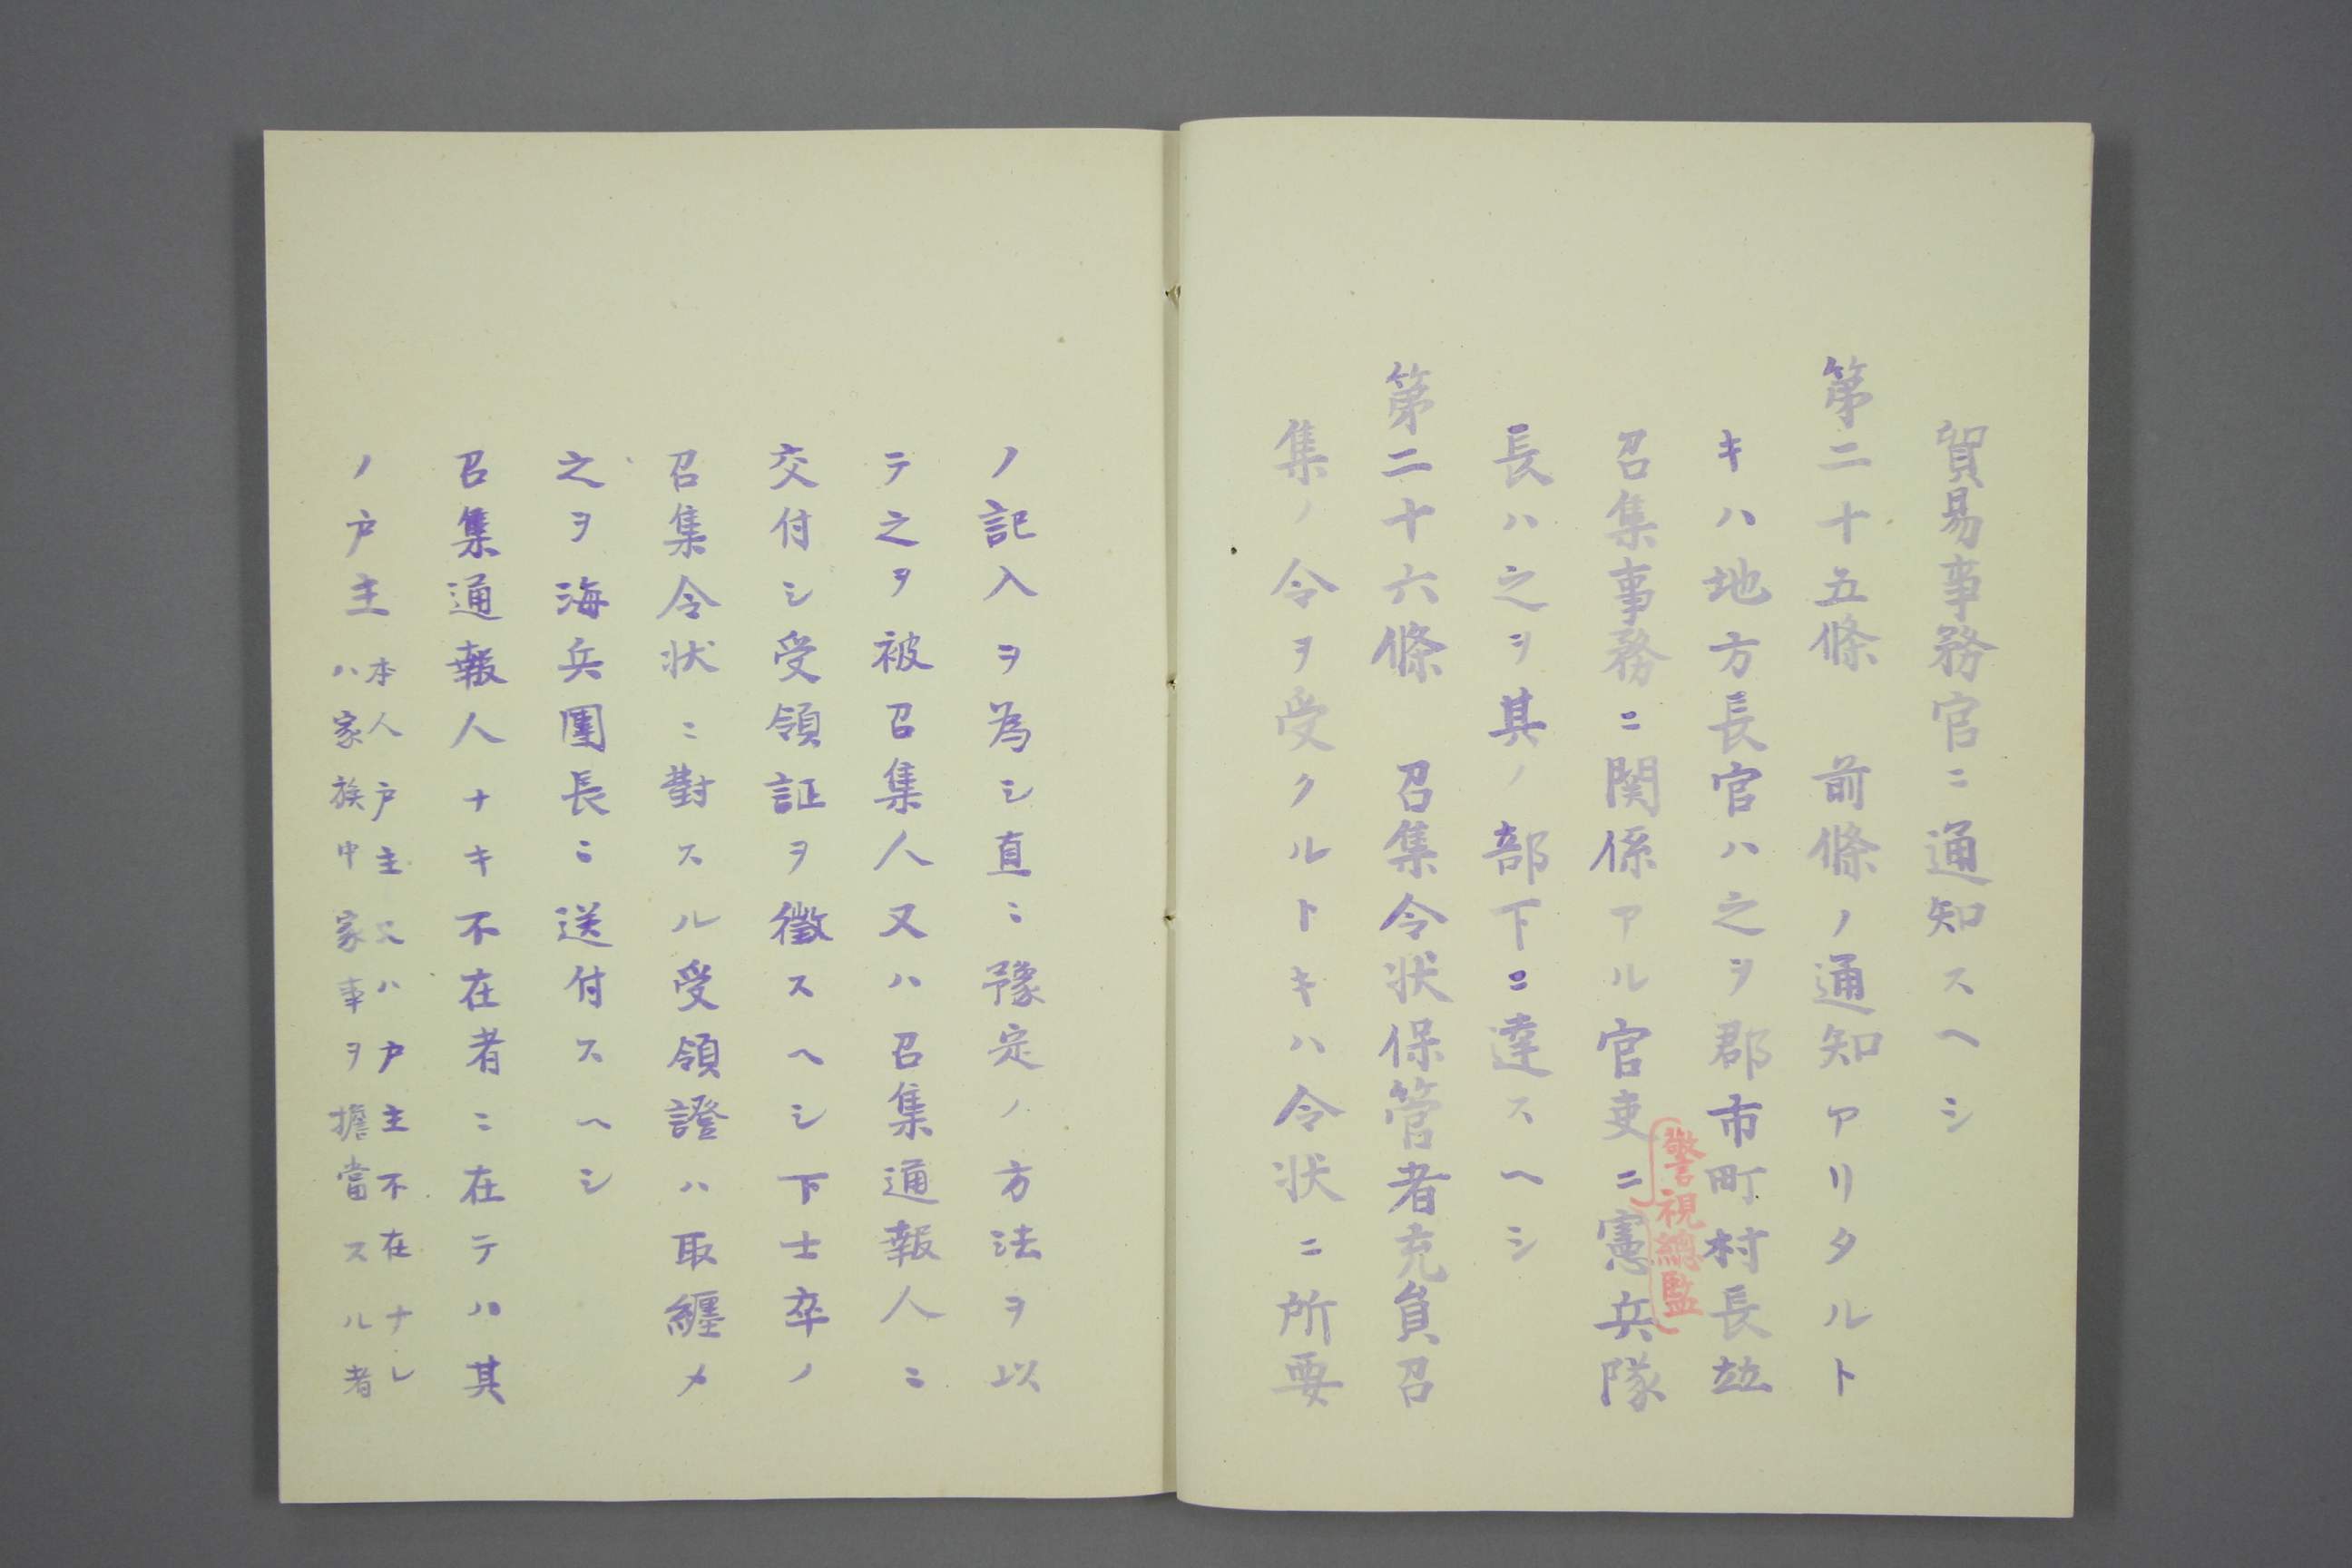 貿易事務官ニ通知スヘシ
第二十五條　前條ノ通知アリタルト
キハ地方長官ハ之ヲ郡市町村長竝
警視總監
召集事務ニ関係アル官吏ニ憲兵隊
長ハ之ヲ其ノ部下ニ達スヘシ
第二十六條　召集令状保管者充員召
集ノ令ヲ受クルトキハ令状ニ所要
ノ記入ヲ為シ直ニ豫定ノ方法ヲ以
テ之ヲ被召集人又ハ召集通報人ニ
交付シ受領証ヲ徴スヘシ下士卒ノ
召集令状ニ對スル受領證ハ取纒メ
之ヲ海兵團長ニ送付スヘシ
召集通報人ナキ不在者ニ在テハ其
ノ戸主
本人戸主又ハ戸主不在ナレ
ハ家族中家事ヲ擔當スル者